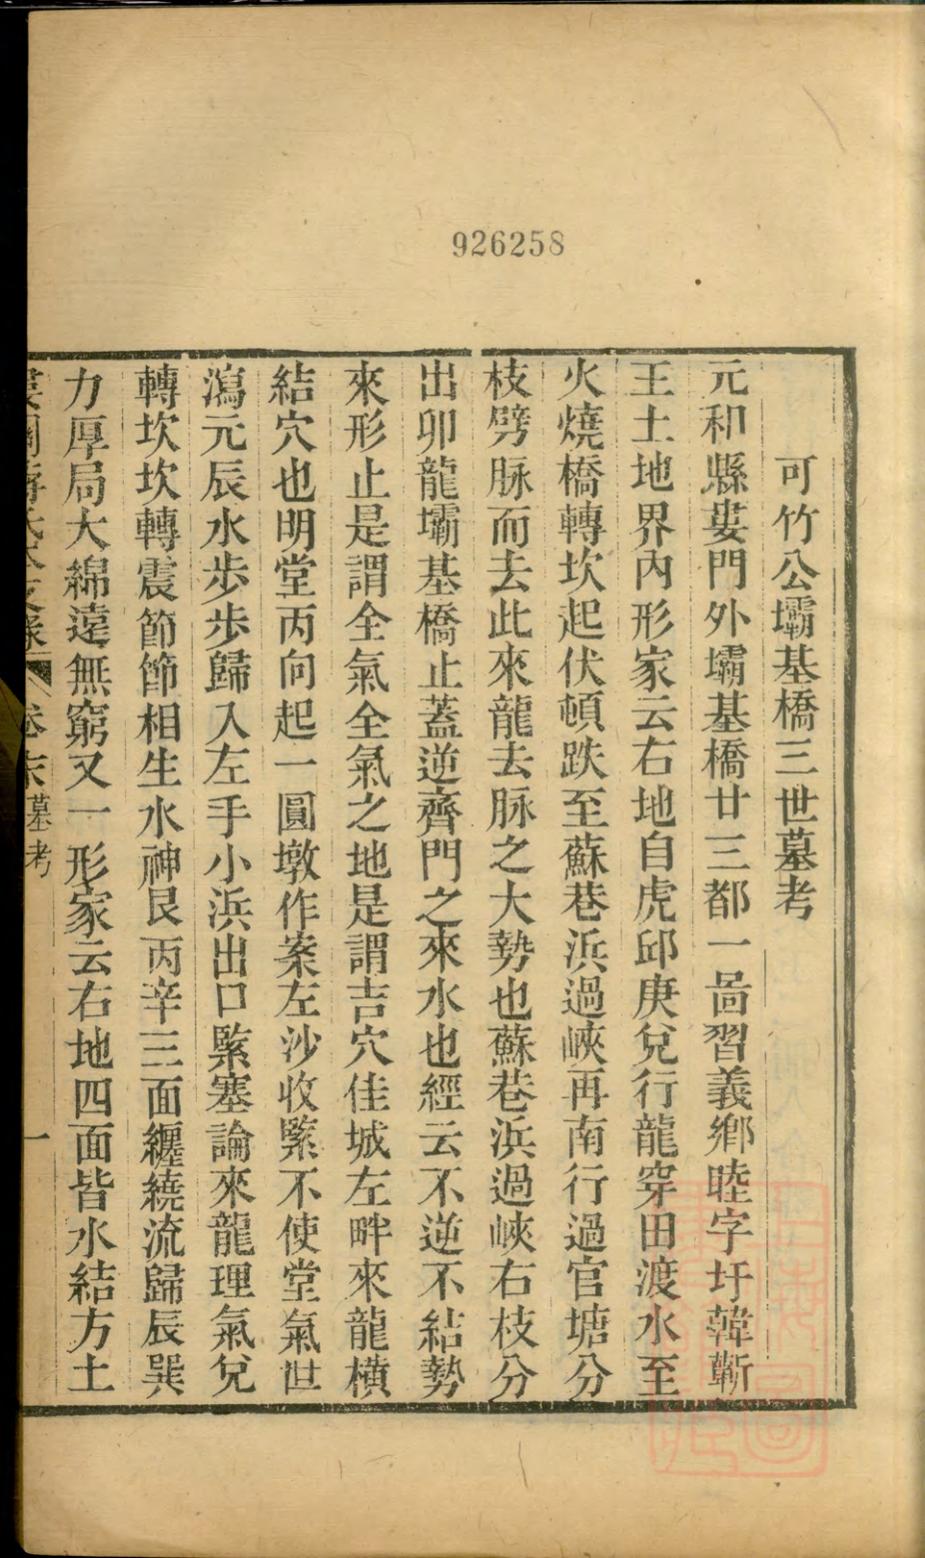 926258
可竹公壩基橋三世墓考
元和縣婁門外壩基橋廿三都一啚習義鄉睦字圩韓蘄
王土地界內形家云右地自虎邱庚兌行龍穿田渡水至
火燒橋轉坎起伏頓跌至蘇巷浜過峽再南行過官塘分
枝劈脉而去此來龍去脉之大勢也蘇巷浜過峽右枝分
出卯龍壩基橋止蓋逆齊門之來水也經云不逆不結勢
來形止是謂全氣全氣之地是謂吉穴佳城左畔來龍橫
結穴也明堂丙向起一圓墩作案左沙收緊不使堂氣世
瀉元辰水步步歸入左手小浜出口緊塞論來龍理氣兌
轉坎坎轉震節節相生水神艮丙辛三面纏繞流歸辰巽
力厚局大綿遠無窮又一形家云右地四面皆水結方土
卷末墓考 一